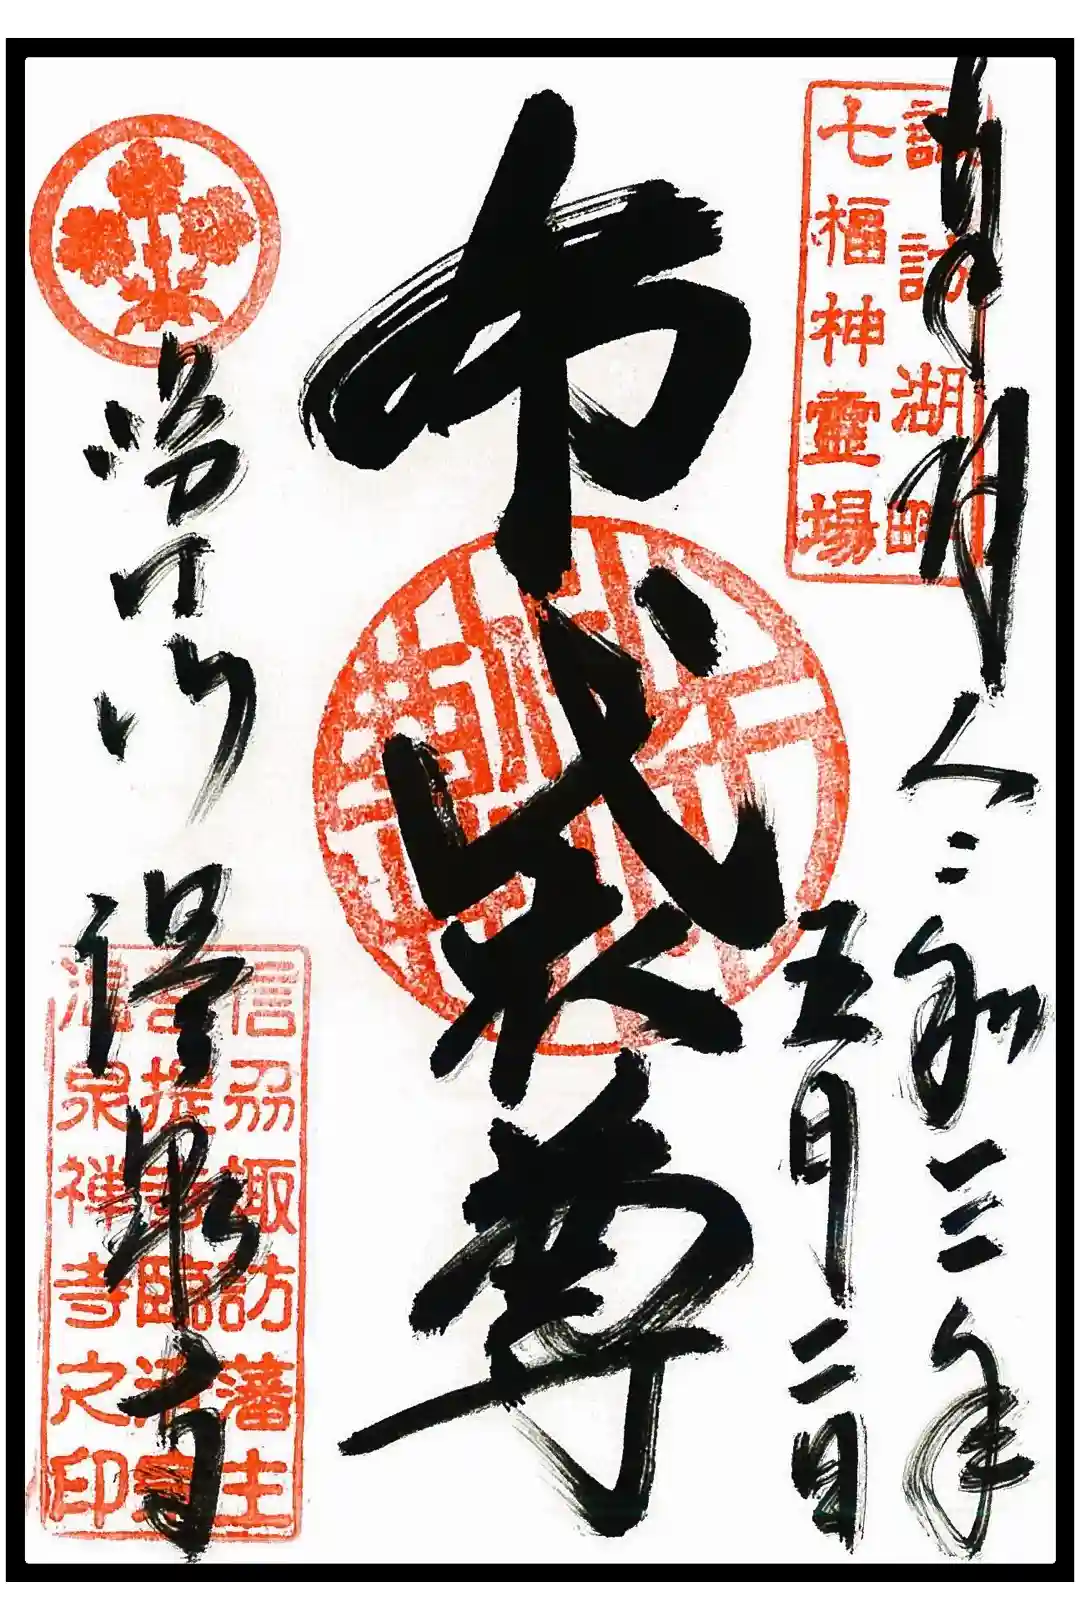 諏訪湖畔
七福神靈場
令和三年
五月二日
布袋尊
温泉寺
信刕諏訪藩主
菩提寺臨済宗
温泉禅寺之印